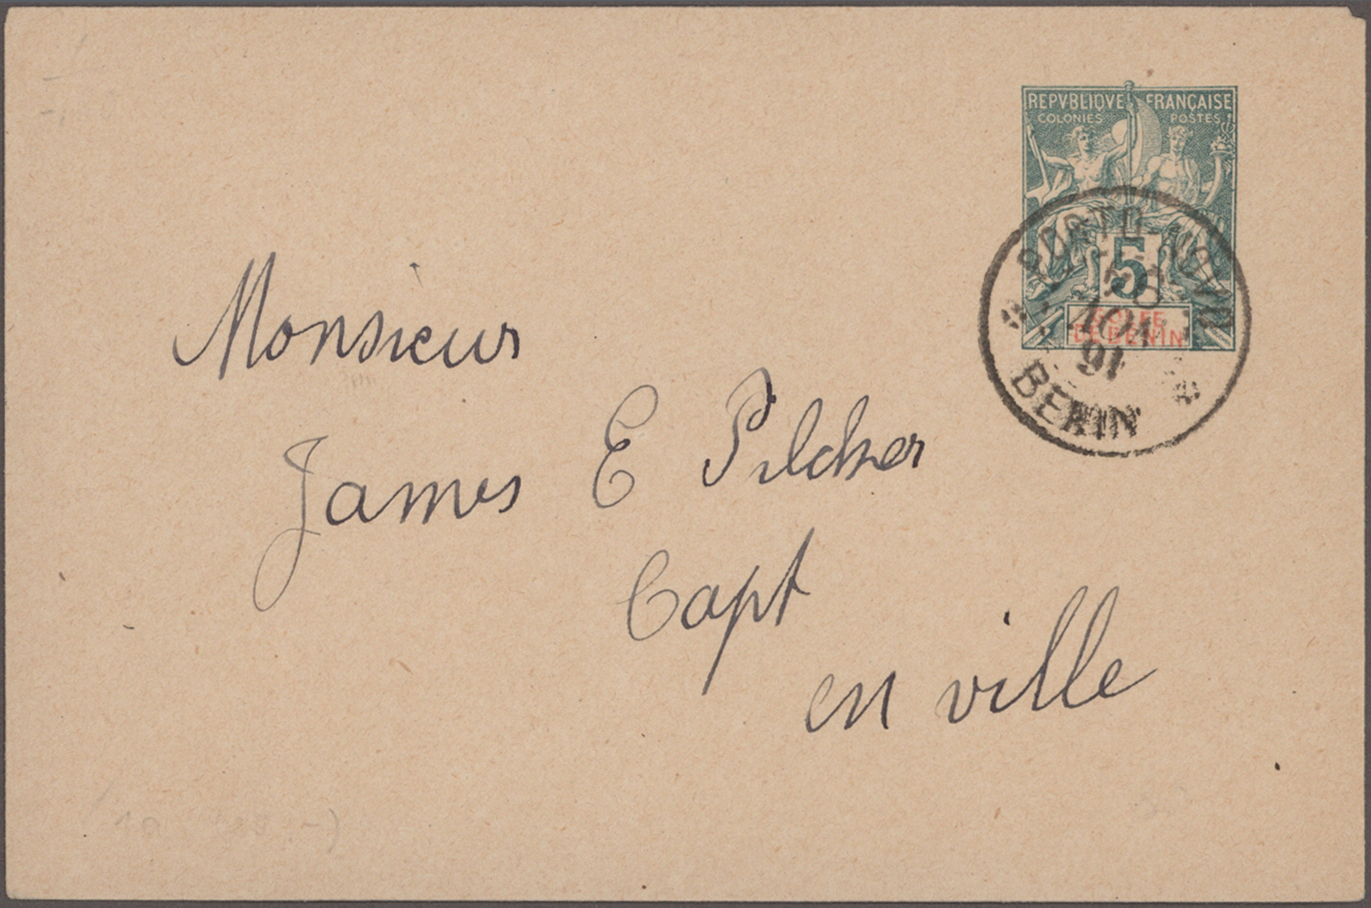 REPVBLIQVE FRANÇAISE
COLONIES POSTES
5
GOLFE
DE BÉNIN
PORTO-NOVO
91
BENIN
Monsieur
James E Pilcher
Capt
en ville